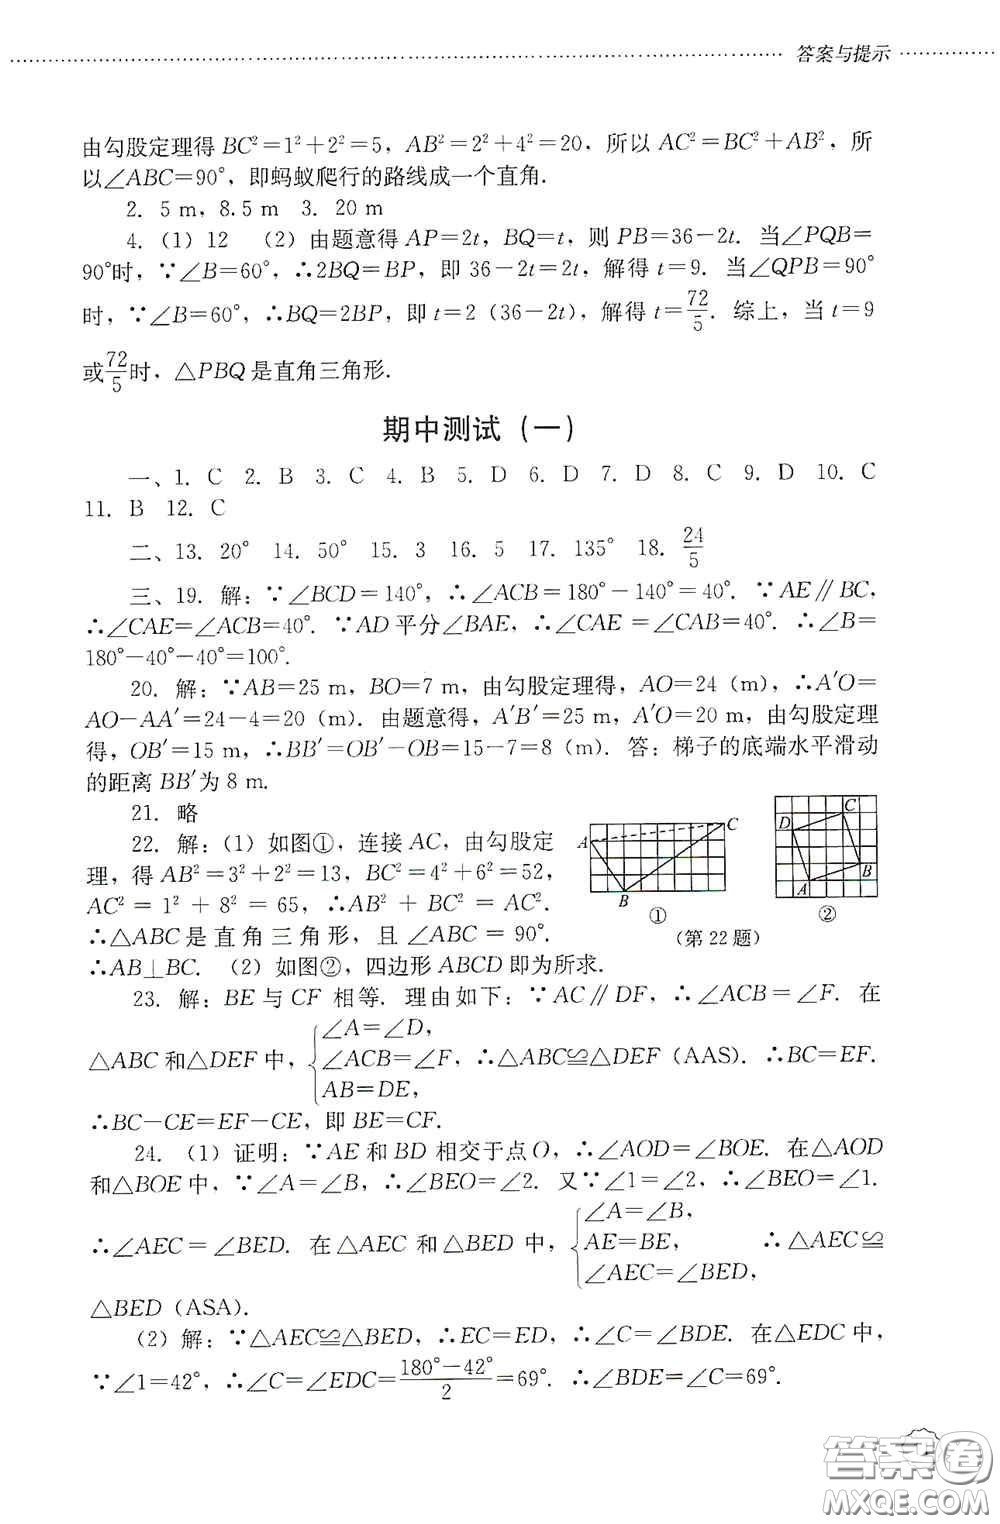 答案与提示
由勾股定理得 BC²=1²+2²=5，AB²=2²+4²=20，所以 AC²=BC²+AB²，所
以∠ABC=90°，即蚂蚁爬行的路线成一个直角.
2. 5 m，8.5 m 3. 20 m
4. (1) 12 (2) 由题意得 AP=2t，BQ=t，则 PB=36−2t. 当∠PQB=
90°时，∵∠B=60°，∴2BQ=BP，即 36−2t=2t，解得 t=9. 当∠QPB=90°
时，∵∠B=60°，∴BQ=2BP，即 t=2 (36−2t)，解得 t=72/5. 综上，当 t=9
或72/5时，△PBQ 是直角三角形.
期中测试 (一)
一、1. C 2. B 3. C 4. B 5. D 6. D 7. D 8. C 9. D 10. C
11. B 12. C
二、13. 20° 14. 50° 15. 3 16. 5 17. 135° 18. 24/5
三、19. 解：∵∠BCD=140°，∴∠ACB=180°−140°=40°. ∵AE∥BC，
∴∠CAE=∠ACB=40°. ∵AD 平分∠BAE，∴∠CAE=∠CAB=40°. ∴∠B=
180°−40°−40°=100°.
20. 解：∵AB=25 m，BO=7 m，由勾股定理得，AO=24 (m)，∴A′O=
AO−AA′=24−4=20 (m). 由题意得，A′B′=25 m，A′O=20 m，由勾股定理
得，OB′=15 m，∴BB′=OB′−OB=15−7=8 (m). 答：梯子的底端水平滑动
的距离 BB′为 8 m.
21. 略
22. 解：(1) 如图①，连接 AC，由勾股定
理，得 AB²=3²+2²=13，BC²=4²+6²=52，
AC²=1²+8²=65，∴AB²+BC²=AC².
∴△ABC 是直角三角形，且∠ABC=90°.
∴AB⊥BC. (2) 如图②，四边形 ABCD 即为所求.
A
B
C
①
D
C
A
B
②
(第 22 题)
23. 解：BE 与 CF 相等. 理由如下：∵AC∥DF，∴∠ACB=∠F. 在
∠A=∠D，
△ABC 和△DEF 中，{∠ACB=∠F，∴△ABC≌△DEF (AAS). ∴BC=EF.
AB=DE，
∴BC−CE=EF−CE，即 BE=CF.
24. (1) 证明：∵AE 和 BD 相交于点 O，∴∠AOD=∠BOE. 在△AOD
和△BOE 中，∵∠A=∠B，∴∠BEO=∠2. 又∵∠1=∠2，∴∠BEO=∠1.
∠A=∠B，
∴∠AEC=∠BED. 在△AEC 和△BED 中，{AE=BE， ∴△AEC≌
∠AEC=∠BED，
△BED (ASA).
(2) 解：∵△AEC≌△BED，∴EC=ED，∴∠C=∠BDE. 在△EDC 中，
∵∠1=42°，∴∠C=∠EDC=(180°−42°)/2=69°. ∴∠BDE=∠C=69°.
答案卷
MXQE.COM